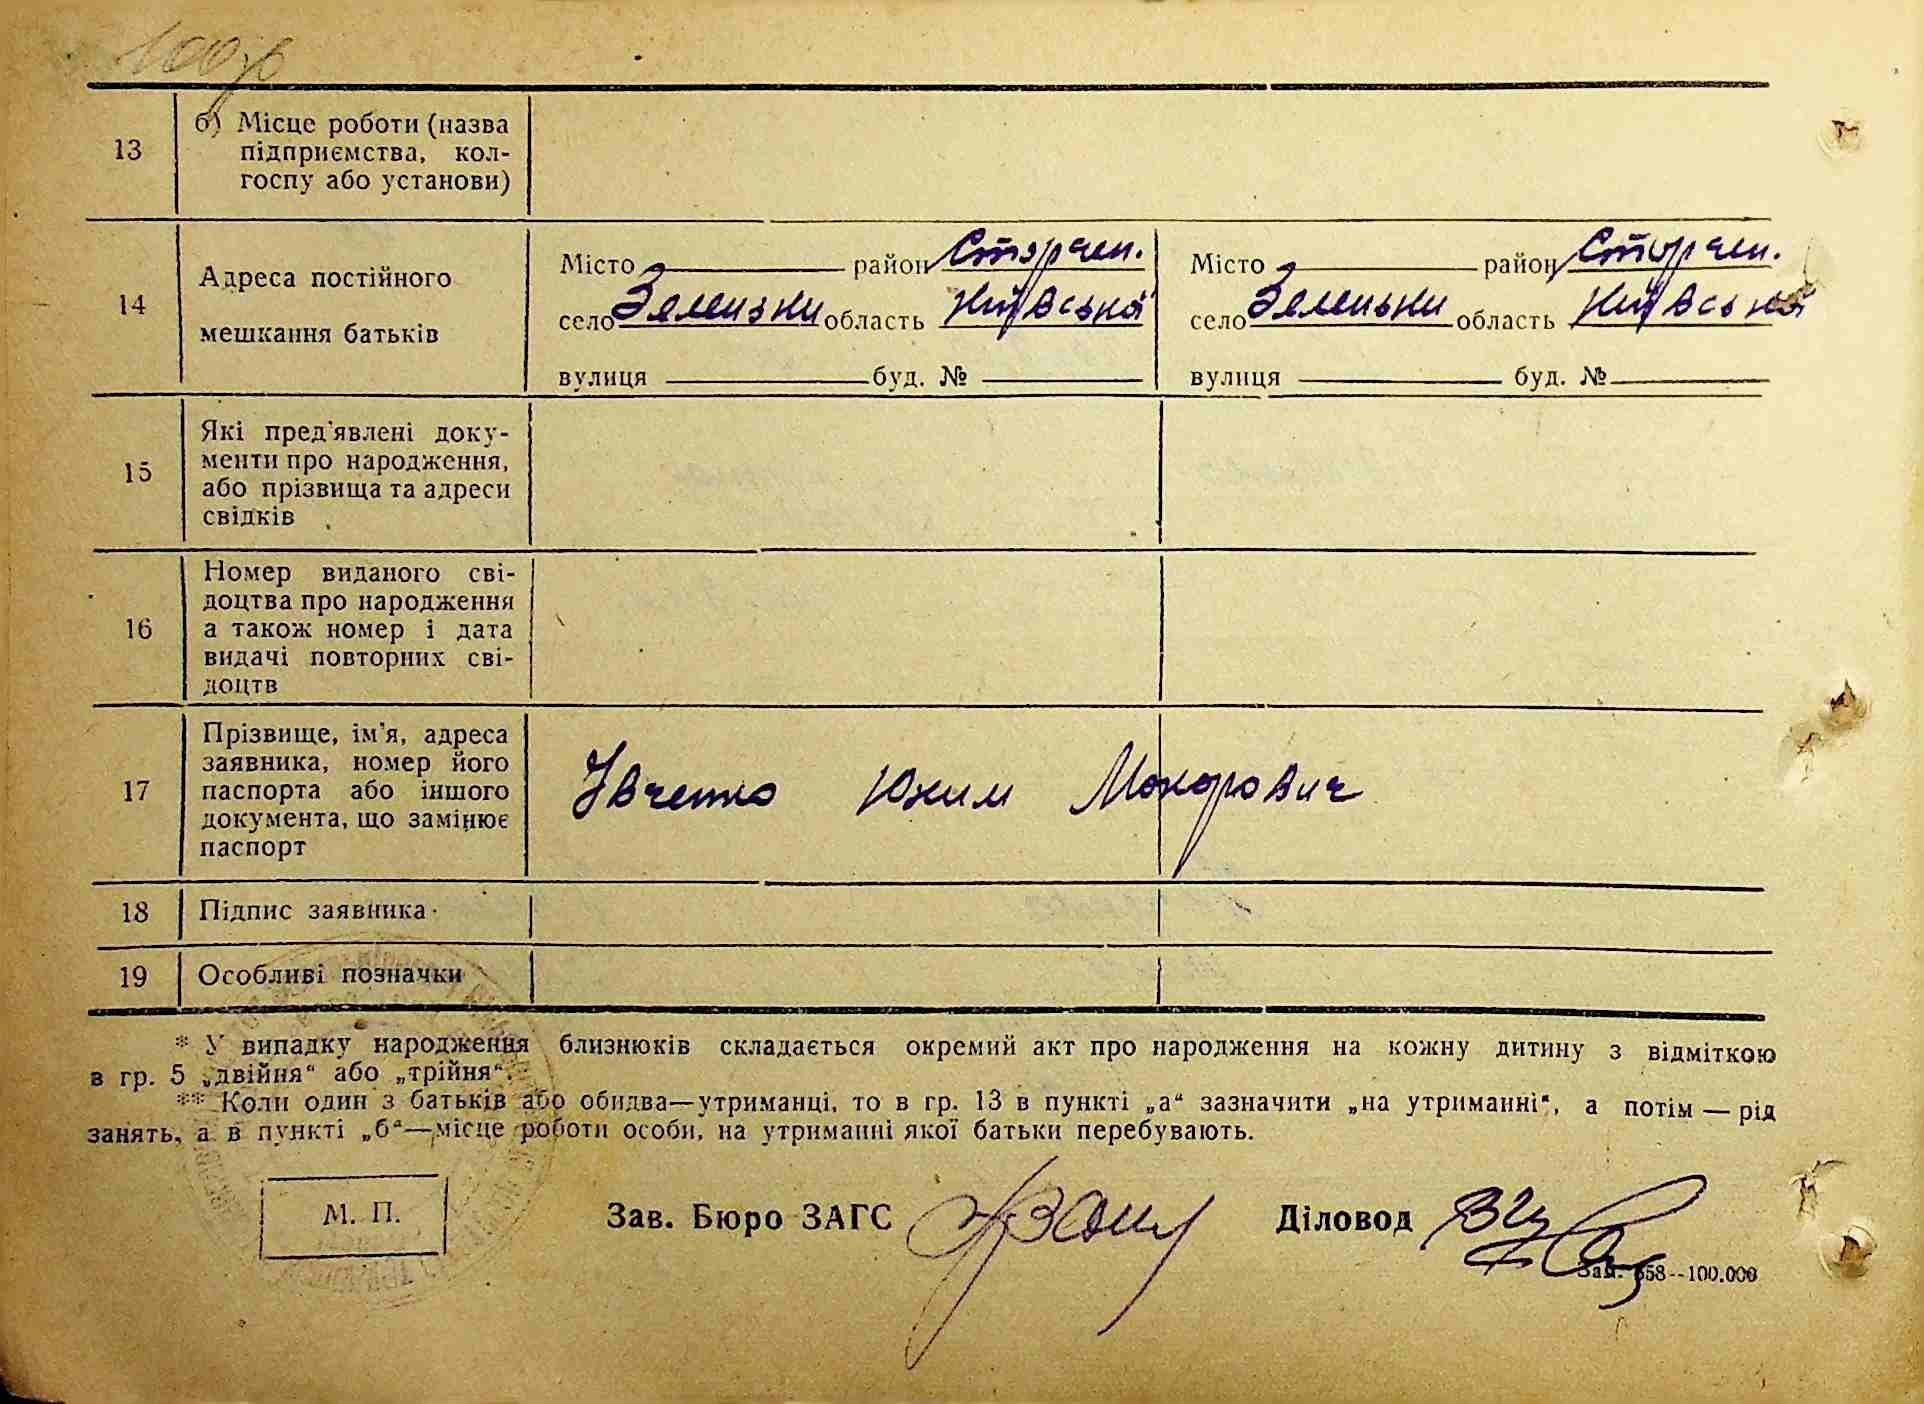 13
б) Місце роботи (назва
підприємства, кол-
госпу або установи)
14
Адреса постійного
мешкання батьків
Місто район Старчен.
село Зеленьки область Київська
вулиця буд. №
Місто район Старчен.
село Зеленьки область Київська
вулиця буд. №
15
Які пред'явлені доку-
менти про народження,
або прізвища та адреси
свідків
16
Номер виданого сві-
доцтва про народження
а також номер і дата
видачі повторних сві-
доцтв
17
Прізвище, ім'я, адреса
заявника, номер його
паспорта або іншого
документа, що замінює
паспорт
Івченко Юхим Макарович
18
Підпис заявника
19
Особливі позначки
* У випадку народження близнюків складається окремий акт про народження на кожну дитину з відміткою
в гр. 5 „двійня“ або „трійня“.
** Коли один з батьків або обидва—утриманці, то в гр. 13 в пункті „а“ зазначити „на утриманні“, а потім — рід
занять, а в пункті „б“—місце роботи особи, на утриманні якої батьки перебувають.
М. П.
Зав. Бюро ЗАГС
Діловод
Зам. 658--100.000